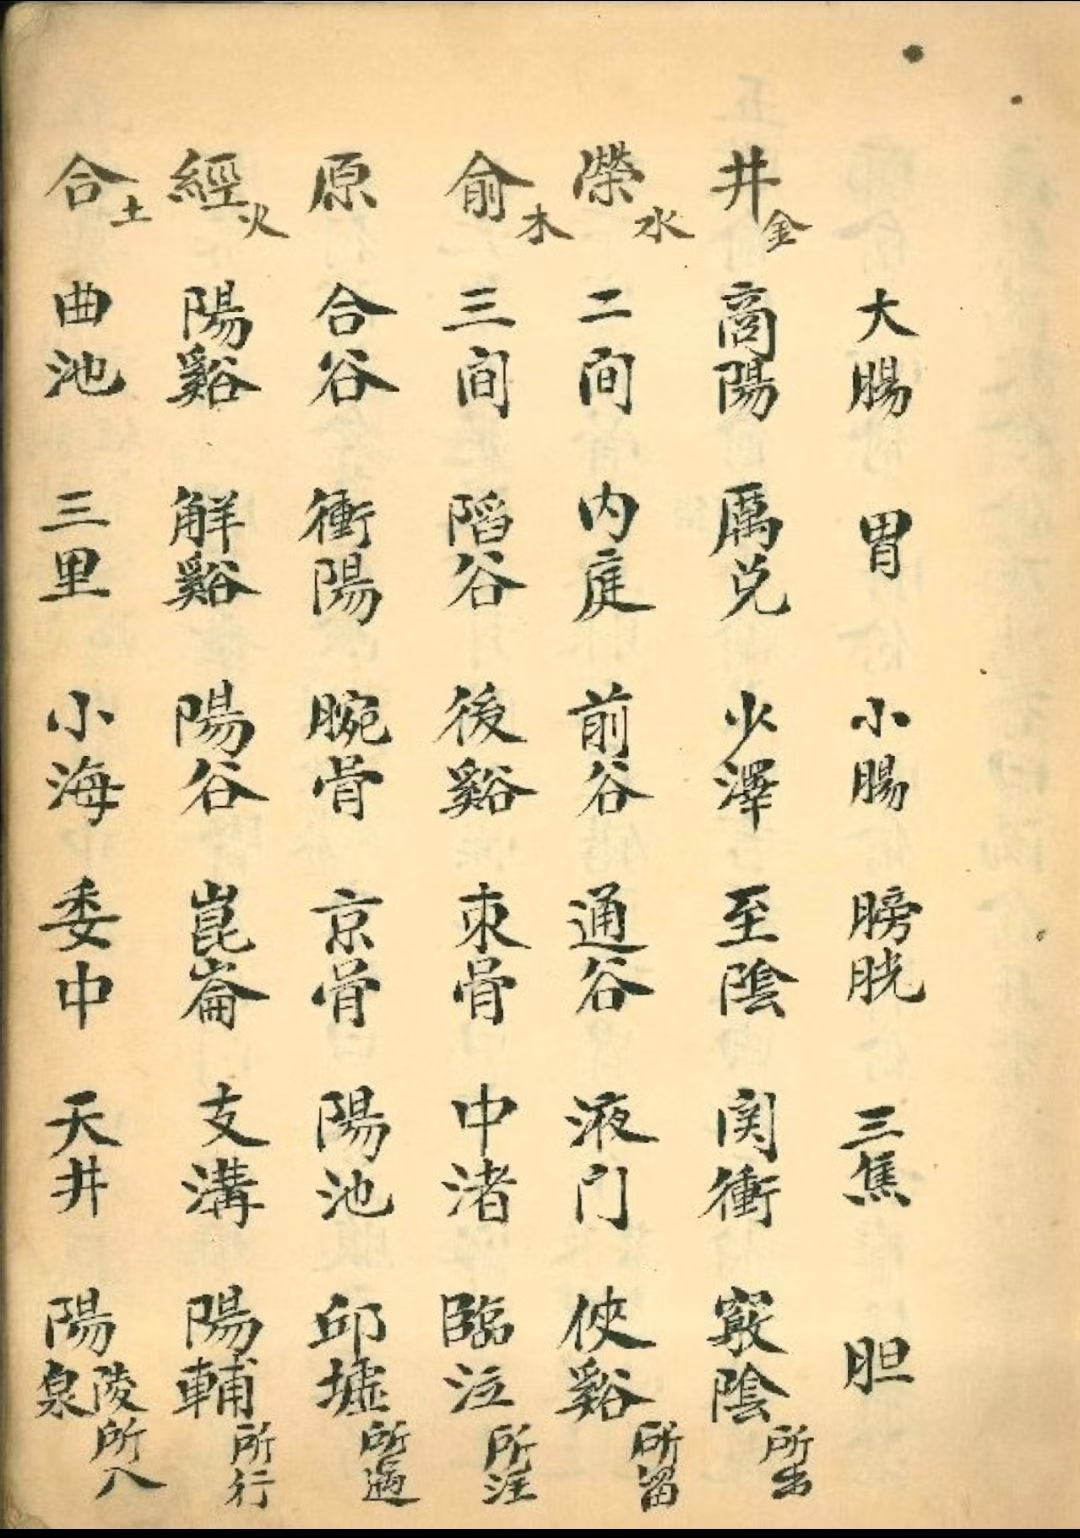 大腸 胃 小腸 膀胱 三焦 胆
井金 商陽 厲兑 少澤 至陰 関衝 竅陰 所出
滎水 二间 内庭 前谷 通谷 液门 侠谿 所留
俞木 三间 陷谷 後谿 束骨 中渚 臨泣 所注
原 合谷 衝陽 腕骨 京骨 陽池 邱墟 所過
經火 陽谿 觧谿 陽谷 崑崙 支溝 陽輔 所行
合土 曲池 三里 小海 委中 天井 陽陵泉 所入